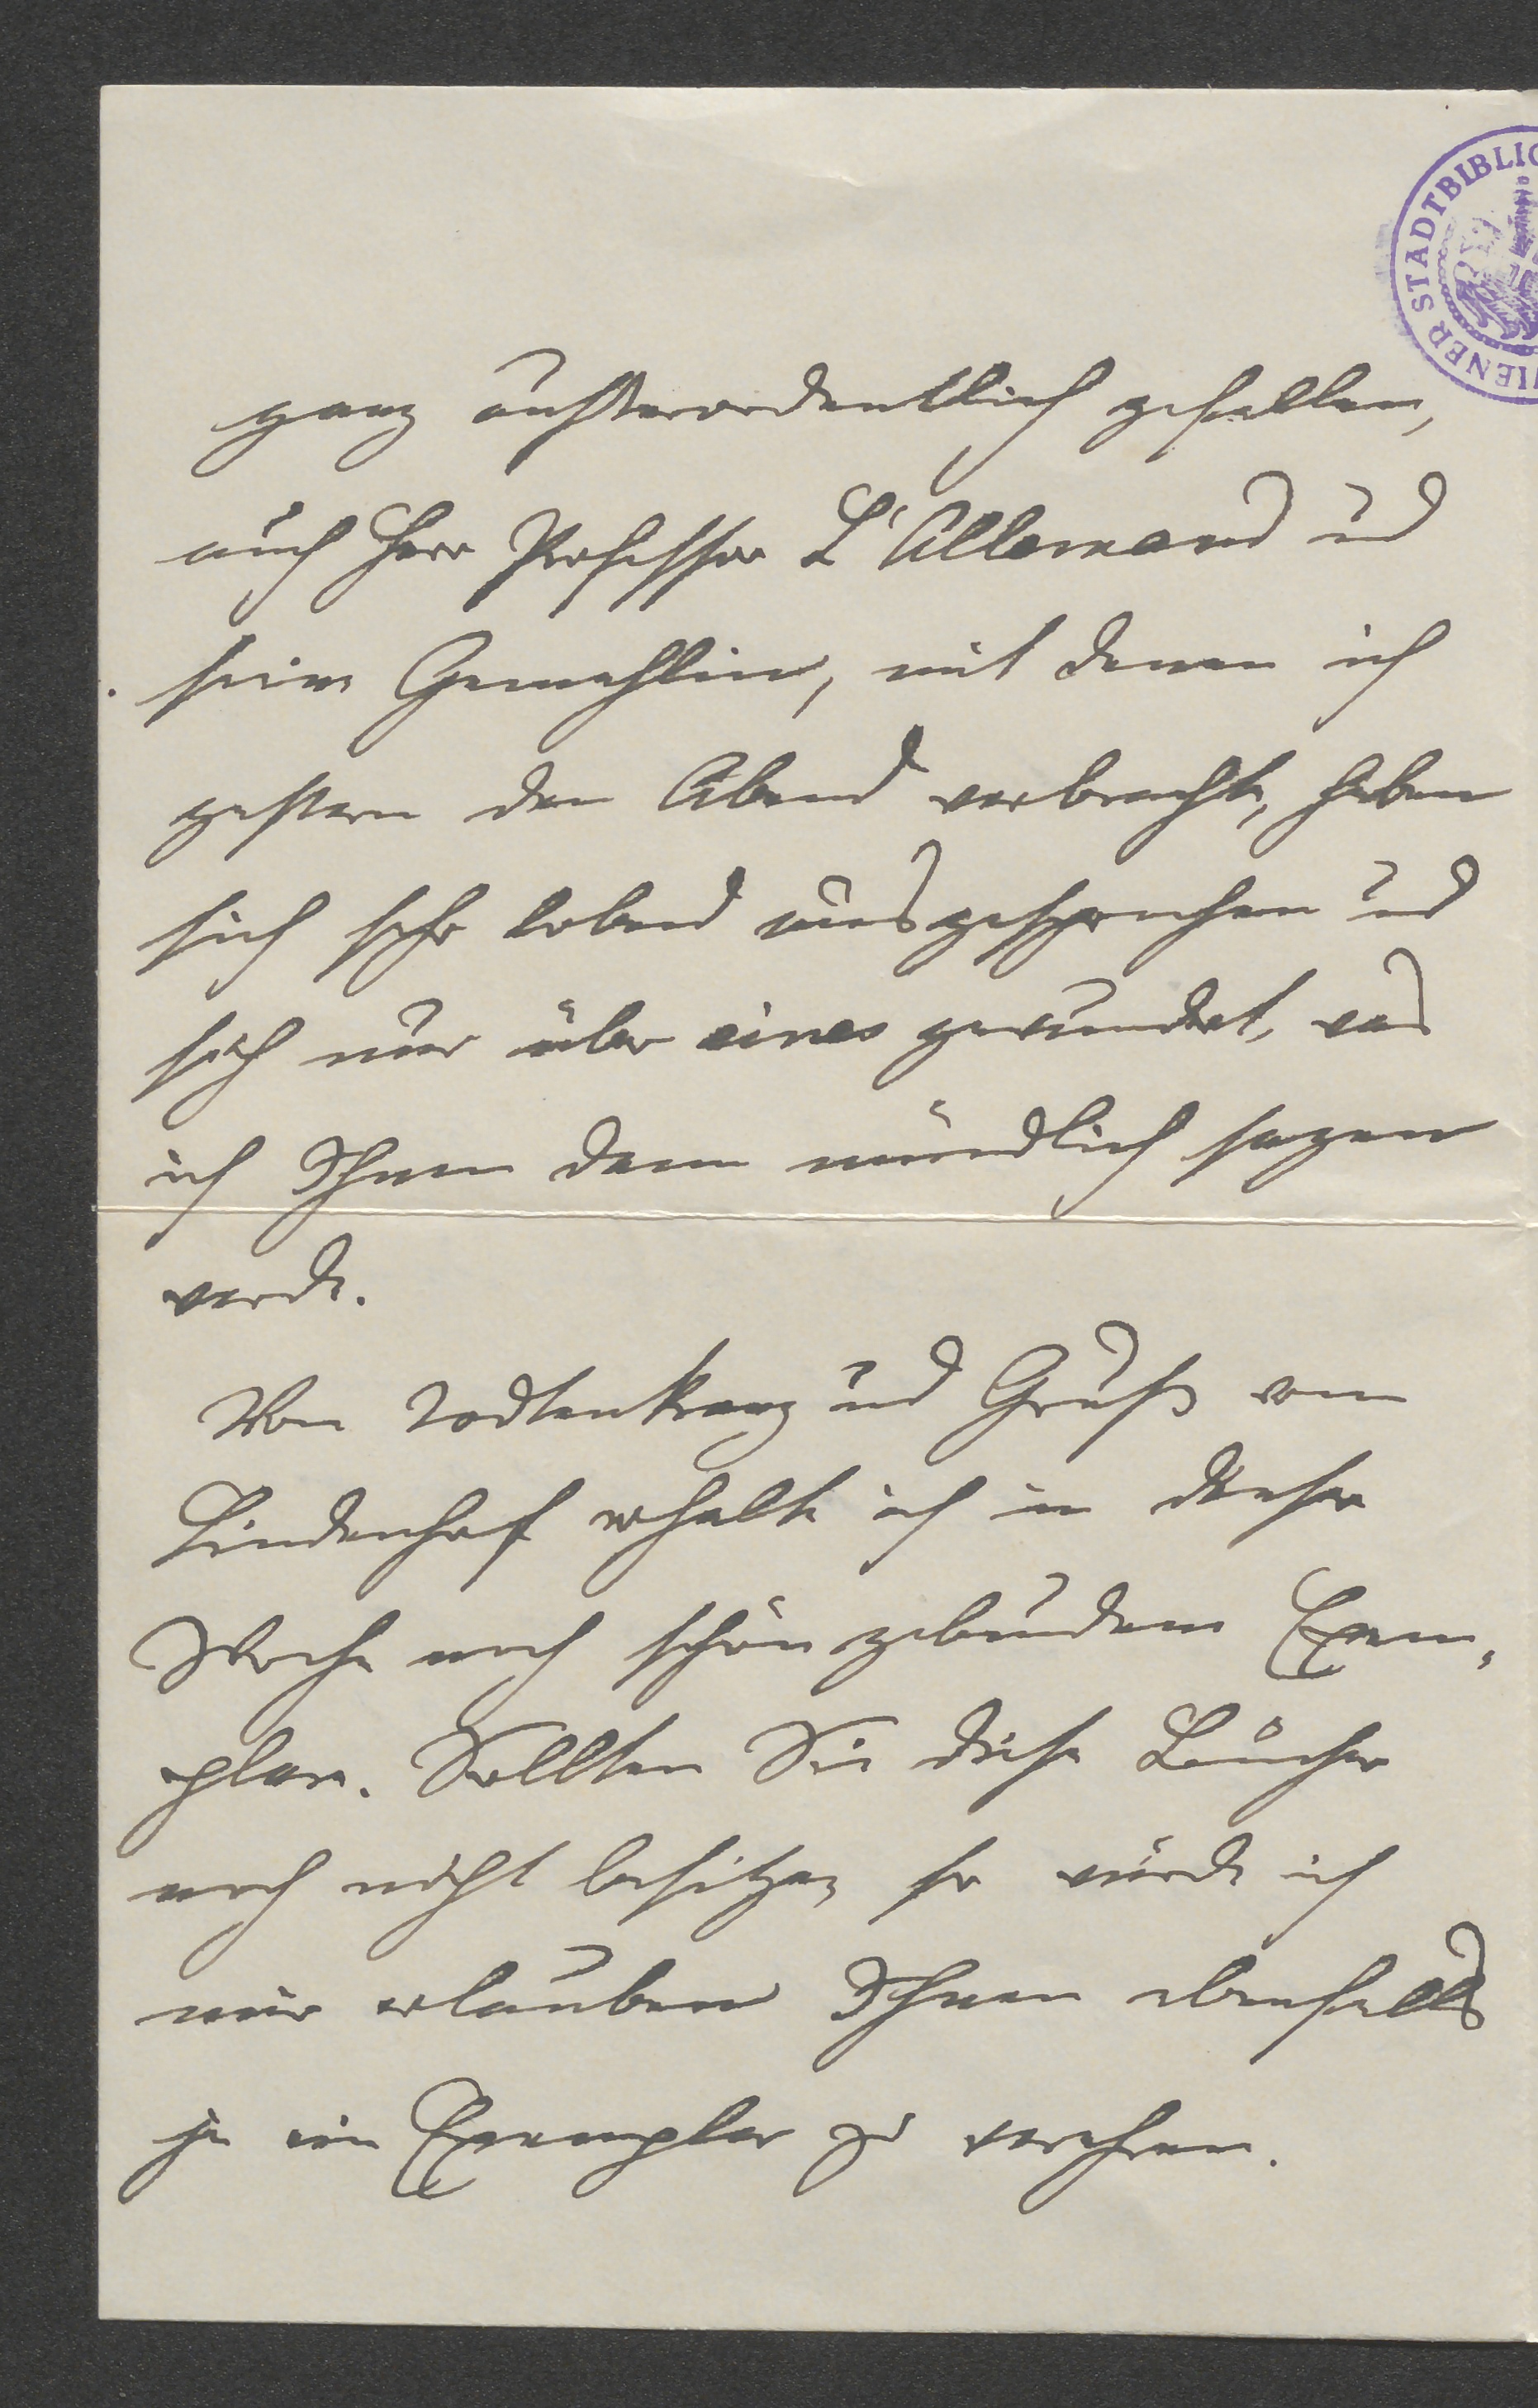 WIENER STADTBIBLIO
ganz außerordentlich gefallen,
auch Herr Professor L'Allemand und
seine Gemahlin, mit denen ich
gestern den Abend verbrachte, haben
sich sehr lobend ausgesprochen und
sich nur über eines gewundert, was
ich Ihnen dann mündlich sagen
werde.
Von Todtenkranz und Gruß vom
Lindenhof erhalte ich in dieser
Woche noch schön gebundene Exem-
plare. Sollten Sie diese Bücher
noch nicht besitzen so würde ich
mir erlauben Ihnen ebenfalls
je ein Exemplar zu verehren.